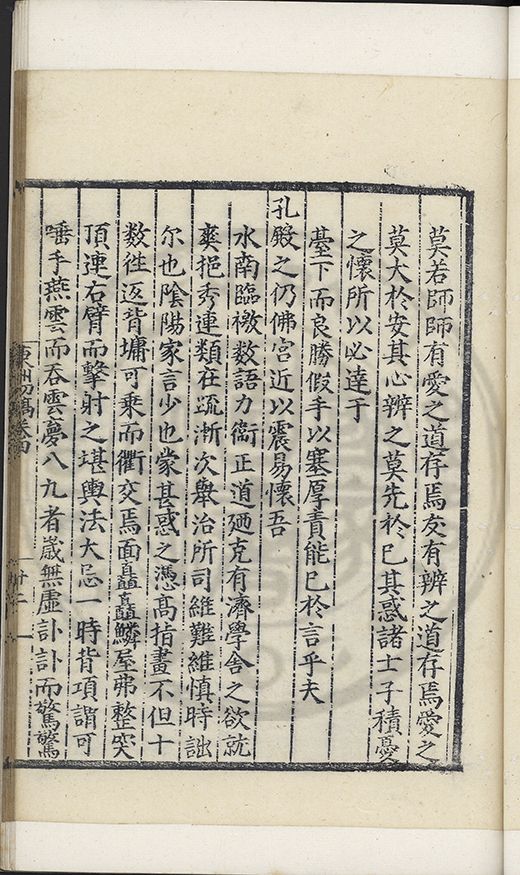 莫若師師有愛之道存焉友有辨之道存焉愛之
莫大於安其心辨之莫先於已其惑諸士子積憂
之懷所以必達于
臺下而良勝假手以塞厚責能已於言乎夫
孔殿之仍佛宮近以震易懷吾
水南臨檄数語力衞正道廼克有濟學舍之欲就
爽挹秀連類在疏漸次舉治所司維難維慎時詘
尔也陰陽家言少也蒙甚惑之憑髙指畫不但十
数徃返背墉可乗而衢交焉面矗矗鱗屋弗整突
頂連右臂而擊射之堪輿法大忌一時背項謂可
唾手燕雲而吞雲夢八九者嵗無虛訃訃而驚驚
東洲初稿卷四
十二